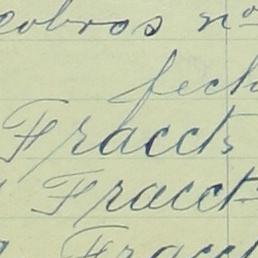 cobros no
fech
Fracct
Fracct
Fracct